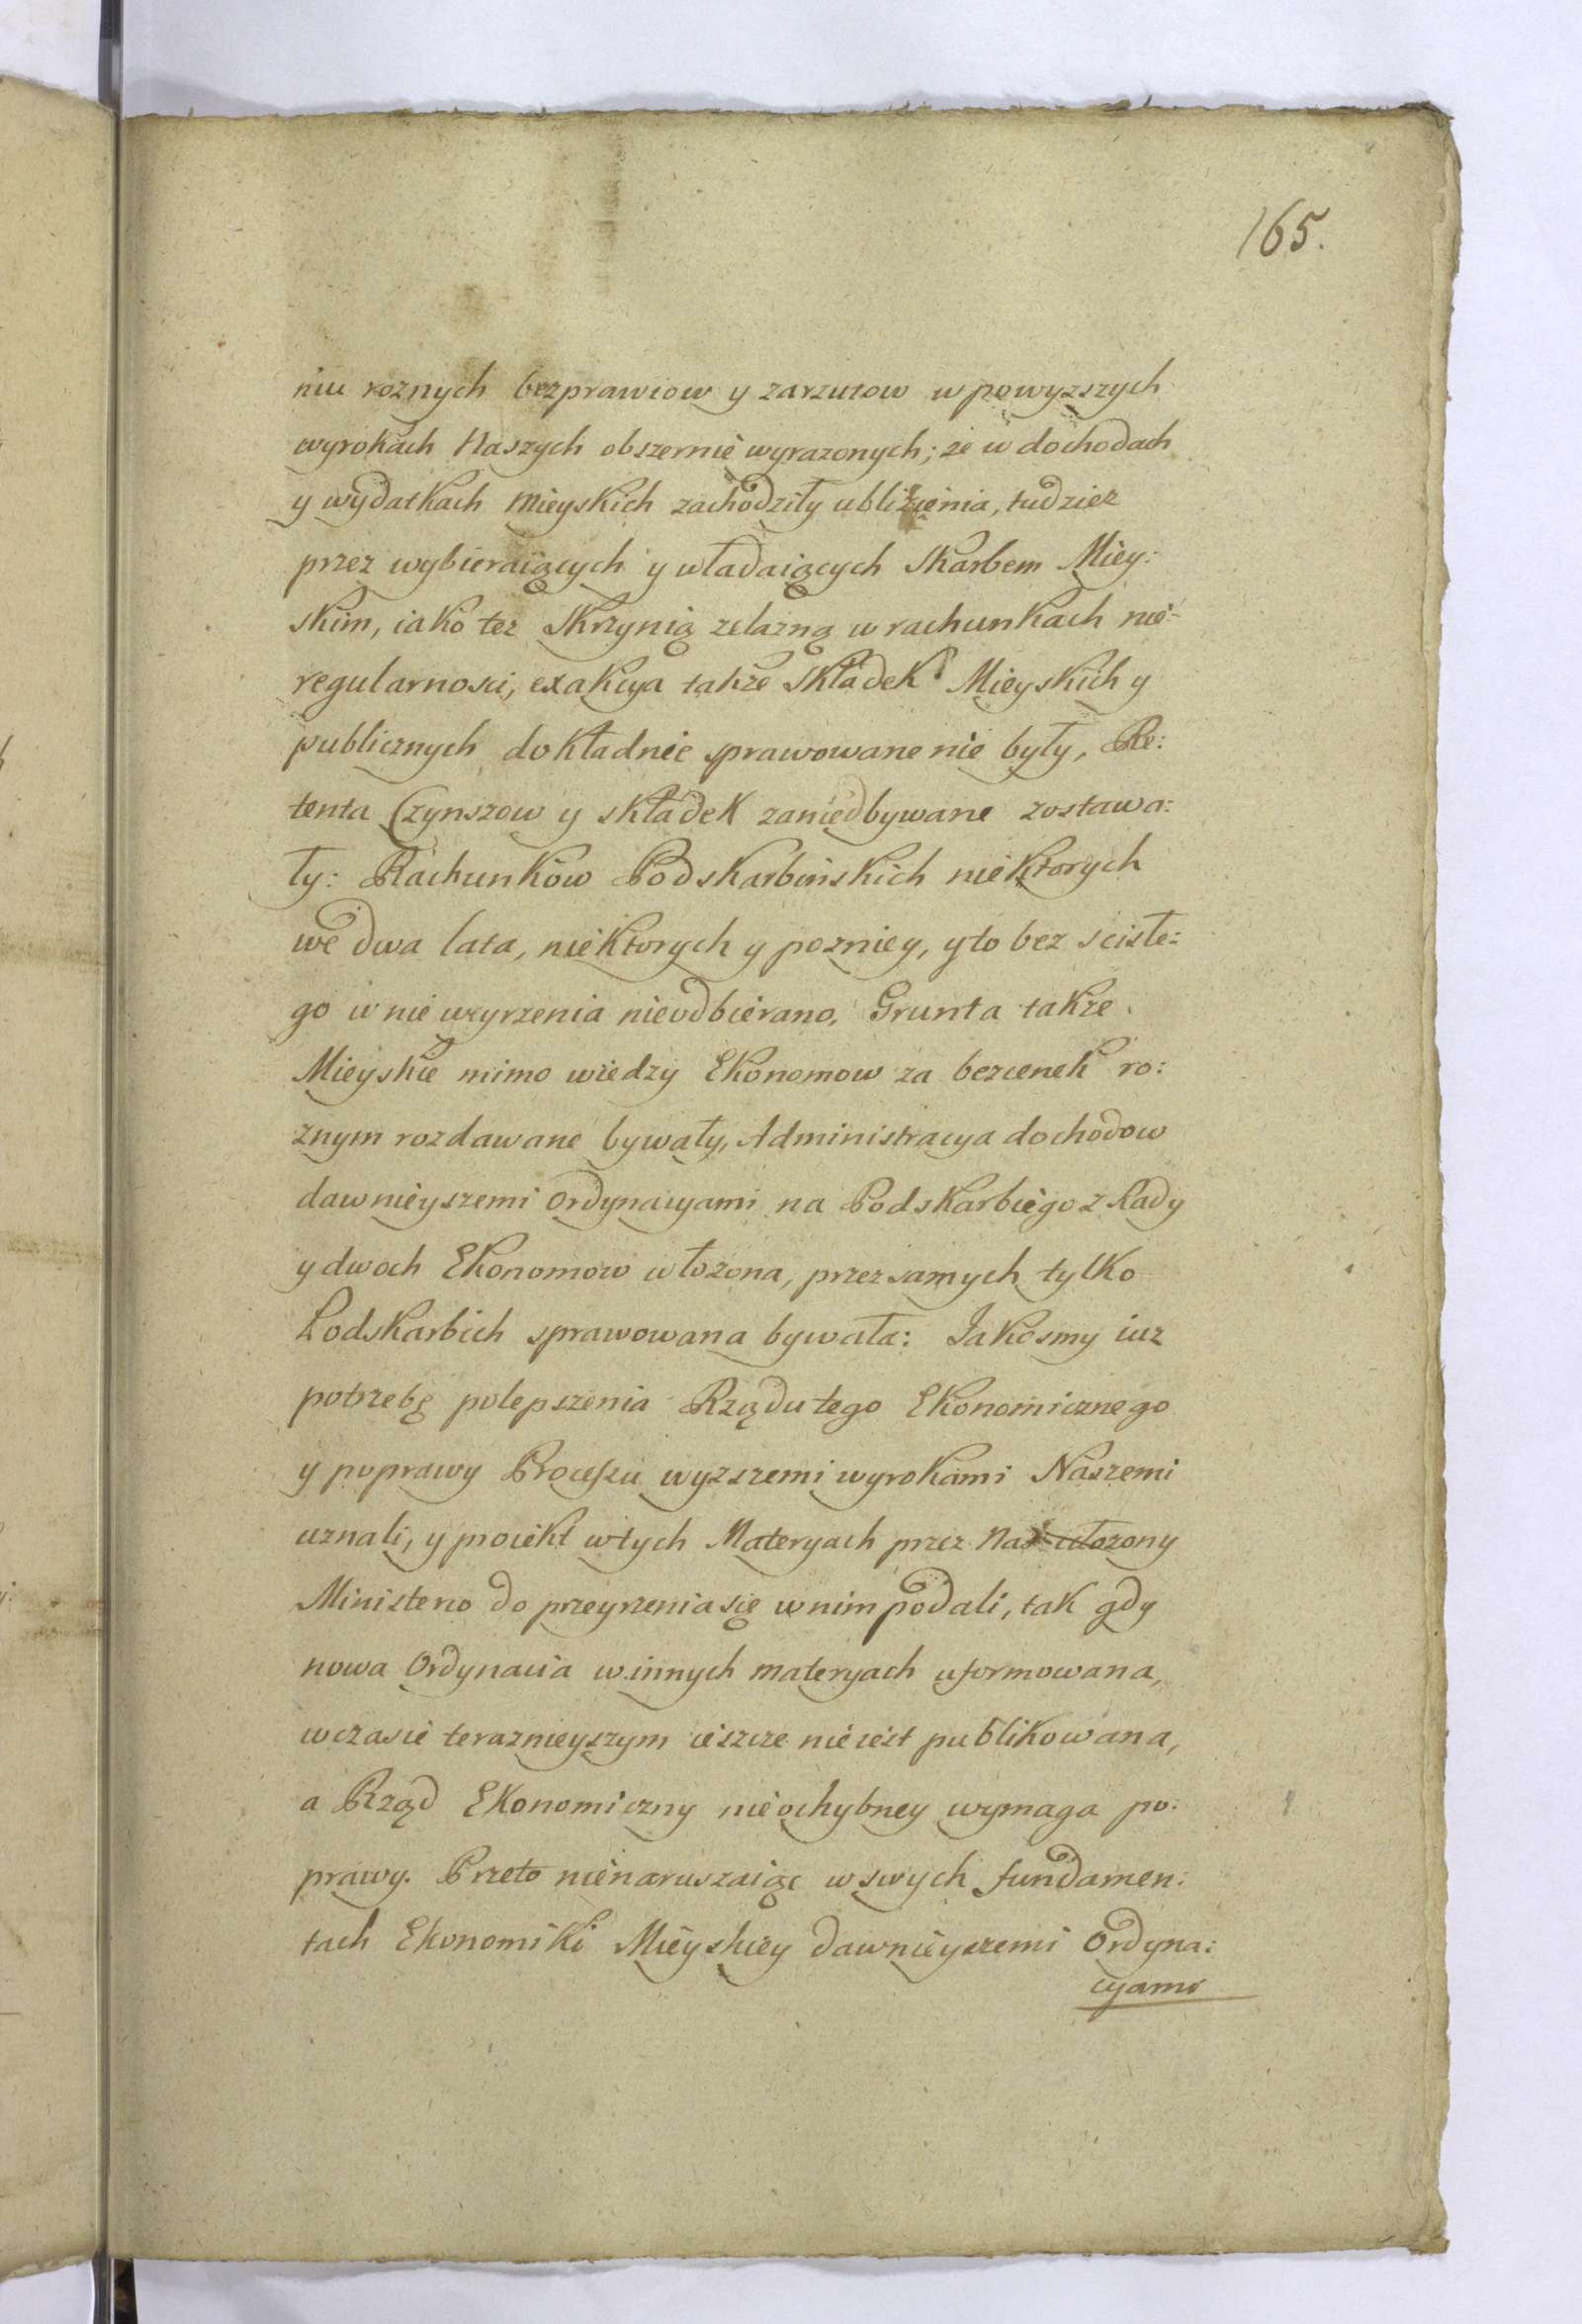 165.
niu roznych bezprawiow y zarzutow w powyzszych
wyrokach Naszych obszernie wyrazonych; ze w dochodach
y wydatkach Mieyskich zachodziły ublizienia, tudziez
przez wybieraiących y władaiących Skarbem Miey:
skim, iako tez Skrzynią zelazną w rachunkach nie-
regularnosci, exakcya takze Składek Mieyskich y
publicznych dokładnie sprawowane nie były, Re:
tenta Czynszow y składek zaniedbywane zostawa:
ły: Rachunkow Podskarbinskich niektorych
we dwa lata, niektorych y pozniey, y to bez scisłe:
go w nie weyrzenia nieodbierano. Grunta takze
Mieyskie mimo wiedzy Ekonomow za bezcenek ro:
znym rozdawane bywały, Administracya dochodow
dawnieyszemi Ordynacyami na Podskarbiego z Rady
y dwoch Ekonomow włozona, przez samych tylko
Podskarbich sprawowana bywała: Jakosmy iuz
potrzebę polepszenia Rządu tego Ekonomicznego
y poprawy Processu wyzszemi wyrokami Naszemi
uznali, y proiekt w tych Materyach przez Nas ułozony
Ministerio do przeyrzenia się w nim podali, tak gdy
nowa Ordynacia w innych materyach uformowana,
w czasie teraznieyszym ieszcze nie iest publikowana,
a Rząd Ekonomiczny nieochybney wymaga po:
prawy. Przeto nienaruszaiąc w swych fundamen:
tach Ekonomiki Mieyskiey dawnieyszemi Ordyna:
cyami